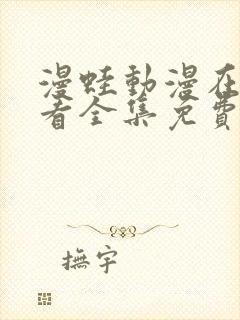 漫蛙動漫在
看全集免費
撫宇